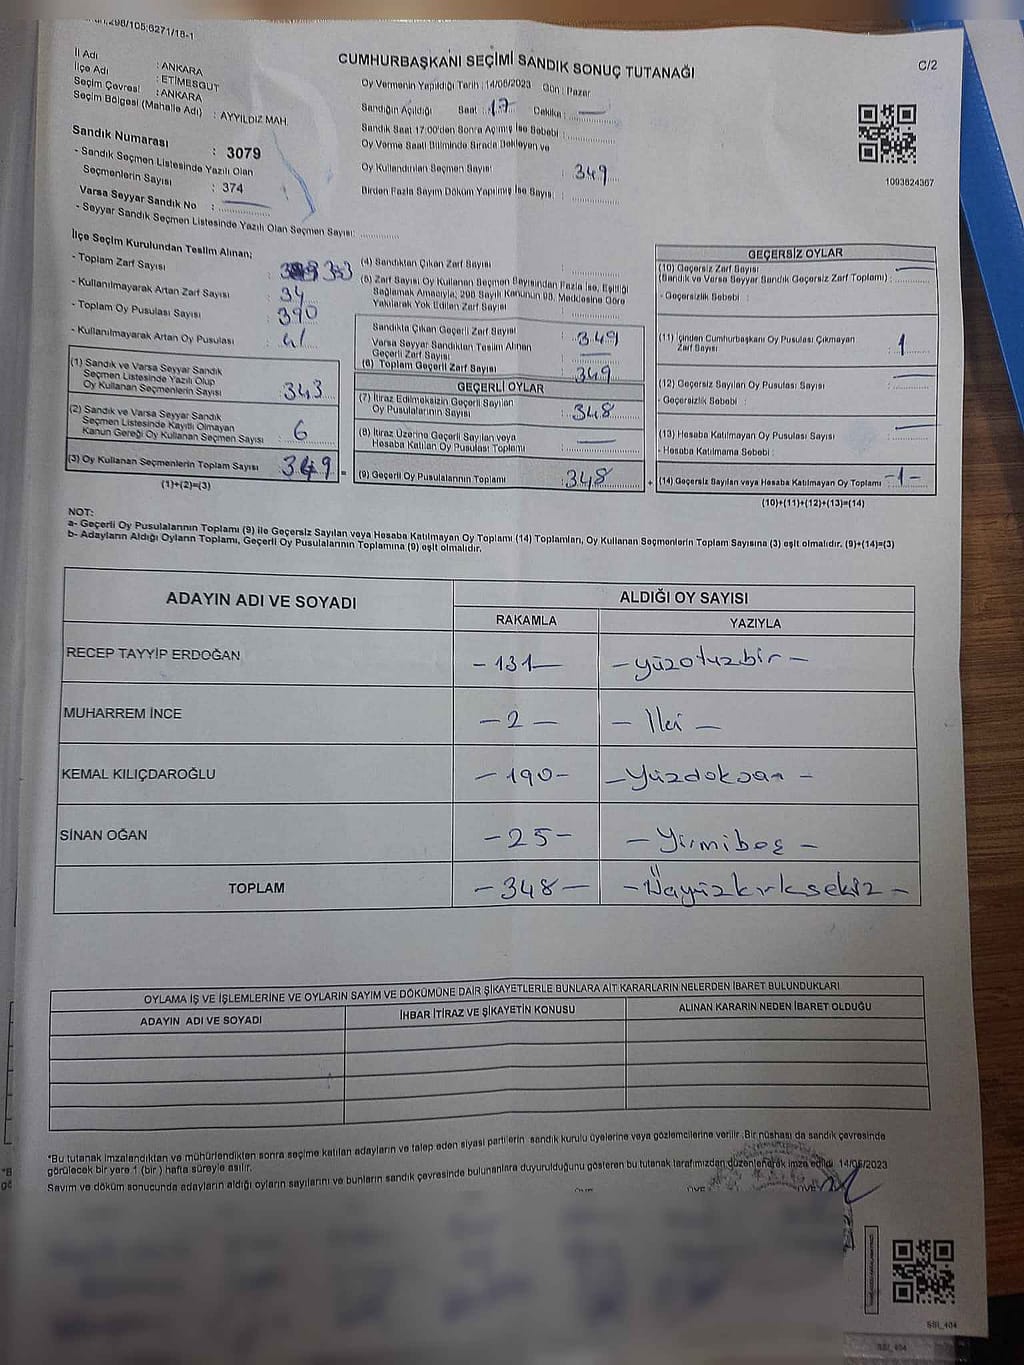 298/105;6271/18-1
CUMHURBAŞKANI SEÇİMİ SANDIK SONUÇ TUTANAĞI
C/2
İl Adı : ANKARA
İlçe Adı : ETİMESGUT
Seçim Çevresi : ANKARA
Seçim Bölgesi (Mahalle Adı) : AYYILDIZ MAH.
Sandık Numarası : 3079
- Sandık Seçmen Listesinde Yazılı Olan
Seçmenlerin Sayısı : 374
Varsa Seyyar Sandık No :
- Seyyar Sandık Seçmen Listesinde Yazılı Olan Seçmen Sayısı:
Oy Vermenin Yapıldığı Tarih : 14/05/2023 Gün : Pazar
Sandığın Açıldığı Saat : 17 Dakika :
Sandık Saat 17:00'den Sonra Açılmış İse Sebebi :
Oy Verme Saati Bitiminde Sırada Bekleyen ve
Oy Kullandırılan Seçmen Sayısı : 349
Birden Fazla Sayım Döküm Yapılmış İse Sayısı :
1093624367
İlçe Seçim Kurulundan Teslim Alınan;
- Toplam Zarf Sayısı : 383
- Kullanılmayarak Artan Zarf Sayısı : 34
- Toplam Oy Pusulası Sayısı : 390
- Kullanılmayarak Artan Oy Pusulası : 41
(1) Sandık ve Varsa Seyyar Sandık
Seçmen Listesinde Yazılı Olup
Oy Kullanan Seçmenlerin Sayısı : 343
(2) Sandık ve Varsa Seyyar Sandık
Seçmen Listesinde Kayıtlı Olmayan
Kanun Gereği Oy Kullanan Seçmen Sayısı : 6
(3) Oy Kullanan Seçmenlerin Toplam Sayısı : 349 =
(1)+(2)=(3)
(4) Sandıktan Çıkan Zarf Sayısı :
(5) Zarf Sayısı Oy Kullanan Seçmen Sayısından Fazla İse, Eşitliği
Sağlamak Amacıyla; 298 Sayılı Kanunun 98. Maddesine Göre
Yakılarak Yok Edilen Zarf Sayısı :
Sandıkta Çıkan Geçerli Zarf Sayısı : 349
Varsa Seyyar Sandıktan Teslim Alınan
Geçerli Zarf Sayısı :
(6) Toplam Geçerli Zarf Sayısı : 349
GEÇERLİ OYLAR
(7) İtiraz Edilmeksizin Geçerli Sayılan
Oy Pusulalarının Sayısı : 348
(8) İtiraz Üzerine Geçerli Sayılan veya
Hesaba Katılan Oy Pusulası Toplamı :
(9) Geçerli Oy Pusulalarının Toplamı : 348 +
GEÇERSİZ OYLAR
(10) Geçersiz Zarf Sayısı
(Sandık ve Varsa Seyyar Sandık Geçersiz Zarf Toplamı) :
- Geçersizlik Sebebi :
(11) İçinden Cumhurbaşkanı Oy Pusulası Çıkmayan
Zarf Sayısı : 1
(12) Geçersiz Sayılan Oy Pusulası Sayısı :
- Geçersizlik Sebebi :
(13) Hesaba Katılmayan Oy Pusulası Sayısı :
- Hesaba Katılmama Sebebi :
(14) Geçersiz Sayılan veya Hesaba Katılmayan Oy Toplamı : -1-
(10)+(11)+(12)+(13)=(14)
NOT:
a- Geçerli Oy Pusulalarının Toplamı (9) ile Geçersiz Sayılan veya Hesaba Katılmayan Oy Toplamı (14) Toplamları, Oy Kullanan Seçmenlerin Toplam Sayısına (3) eşit olmalıdır. (9)+(14)=(3)
b- Adayların Aldığı Oyların Toplamı, Geçerli Oy Pusulalarının Toplamına (9) eşit olmalıdır.
ADAYIN ADI VE SOYADI
ALDIĞI OY SAYISI
RAKAMLA YAZIYLA
RECEP TAYYİP ERDOĞAN -131- -yüzotuzbir-
MUHARREM İNCE -2- -İki-
KEMAL KILIÇDAROĞLU -190- -Yüzdoksan-
SİNAN OĞAN -25- -Yirmibeş-
TOPLAM -348- -Üçyüzkırksekiz-
OYLAMA İŞ VE İŞLEMLERİNE VE OYLARIN SAYIM VE DÖKÜMÜNE DAİR ŞİKAYETLERLE BUNLARA AİT KARARLARIN NELERDEN İBARET BULUNDUKLARI
ADAYIN ADI VE SOYADI İHBAR İTİRAZ VE ŞİKAYETİN KONUSU ALINAN KARARIN NEDEN İBARET OLDUĞU
*Bu tutanak imzalandıktan ve mühürlendikten sonra seçime katılan adayların ve talep eden siyasi partilerin sandık kurulu üyelerine veya gözlemcilerine verilir. Bir nüshası da sandık çevresinde
görülecek bir yere 1 (bir) hafta süreyle asılır.
Sayım ve döküm sonucunda adayların aldığı oyların sayılarını ve bunların sandık çevresinde bulunanlara duyurulduğunu gösteren bu tutanak tarafımızdan düzenlenerek imza edildi. 14/05/2023
SSI_404
SSI_404